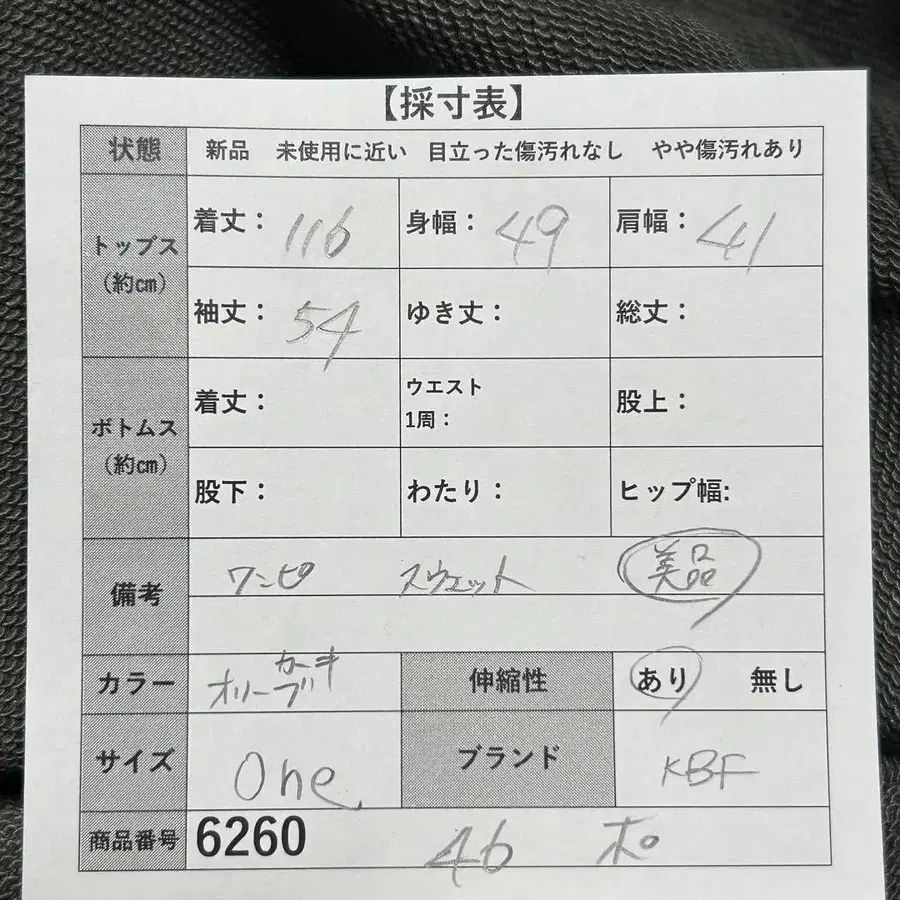 【採寸表】
状態 新品 未使用に近い 目立った傷汚れなし やや傷汚れあり
トップス（約㎝）
着丈： 116 身幅： 49 肩幅： 41
袖丈： 54 ゆき丈： 総丈：
ボトムス（約㎝）
着丈： ウエスト1周： 股上：
股下： わたり： ヒップ幅:
備考 ワンピ スウェット 美品
カラー オリーブ カーキ 伸縮性 あり 無し
サイズ One ブランド KBF
商品番号 6260 46 ポ